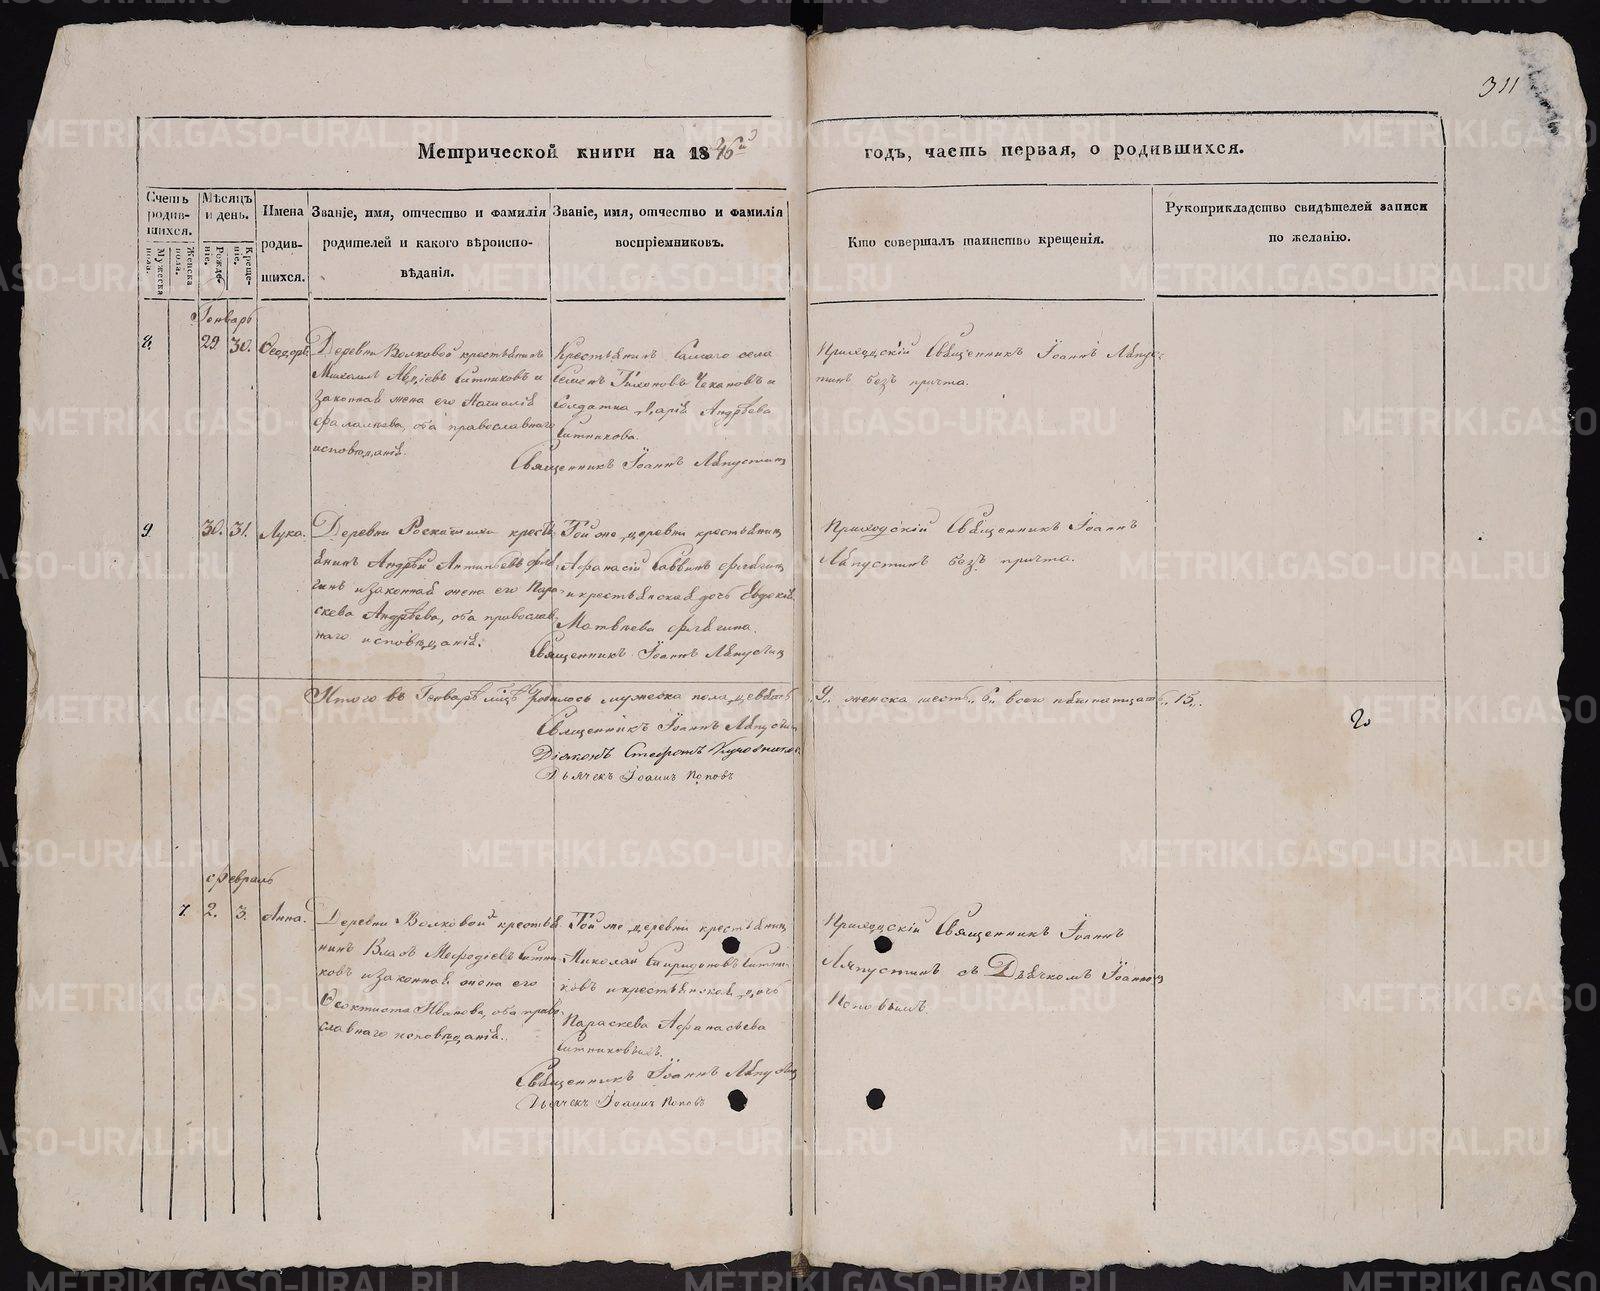 311
Метрической книги на 1846й годъ, часть первая, о родившихся.
Счетъ родившихся.
Мужеска пола.
Женска пола.
Мѣсяцъ и день.
Рожденіе.
Крещеніе.
Имена родившихся.
Званіе, имя, отчество и фамилія
родителей и какого вѣроиспо-
вѣданія.
Званіе, имя, отчество и фамилія
воспріемниковъ.
Кто совершалъ таинство крещенія.
Рукоприкладство свидѣтелей записи
по желанію.
Генварь
8. 29. 30. Ѳеодоръ.
Деревни Волковой крестьянинъ
Михаилъ Авдіевъ Ситниковъ и
законная жена его Наталія
оба православнаго
исповѣданія.
Крестьянинъ Самаго села
Семенъ Тихоновъ Чекановъ и
Солдатка Дарія Андрѣева
Ситникова.
Священникъ Іоаннъ Ляпустинъ
Приходскій Священникъ Іоаннъ Ляпус-
тинъ безъ причта.
9. 30. 31. Лука.
Деревни крестья-
янинъ Андрей Антипьевъ
и законная жена его Пара-
скева Андрѣева, оба православ-
наго исповѣданія.
Той же деревни крестьянинъ
Афанасій Саввинъ
и крестьянская дочь Евдокія
Матвѣева
Священникъ Іоаннъ Ляпустинъ
Приходскій Священникъ Іоаннъ
Ляпустинъ безъ причта.
Итого въ Генварѣ мцѣ родилось мужеска пола девять „9„ женска шесть „6„ всего пятнатцать „15„.
Священникъ Іоаннъ Ляпустинъ
Діаконъ Стефанъ
Дьячекъ Іоаннъ Поповъ
Февраль
7. 2. 3. Анна.
Деревни Волковой крестья-
нинъ Власъ Мефодіевъ Ситни-
ковъ и законная жена его
Ѳеоктиста Иванова, оба право-
славнаго исповѣданія.
Той же деревни крестьянинъ
Николай Спиридоновъ Ситни-
ковъ и крестьянская дочь
Параскева Афанасьева
Ситниковыхъ.
Священникъ Іоаннъ Ляпустинъ
Дьячекъ Іоаннъ Поповъ
Приходскій Священникъ Іоаннъ
Ляпустинъ съ Дьячкомъ Іоанномъ
Поповымъ.
METRIKI.GASO-URAL.RU